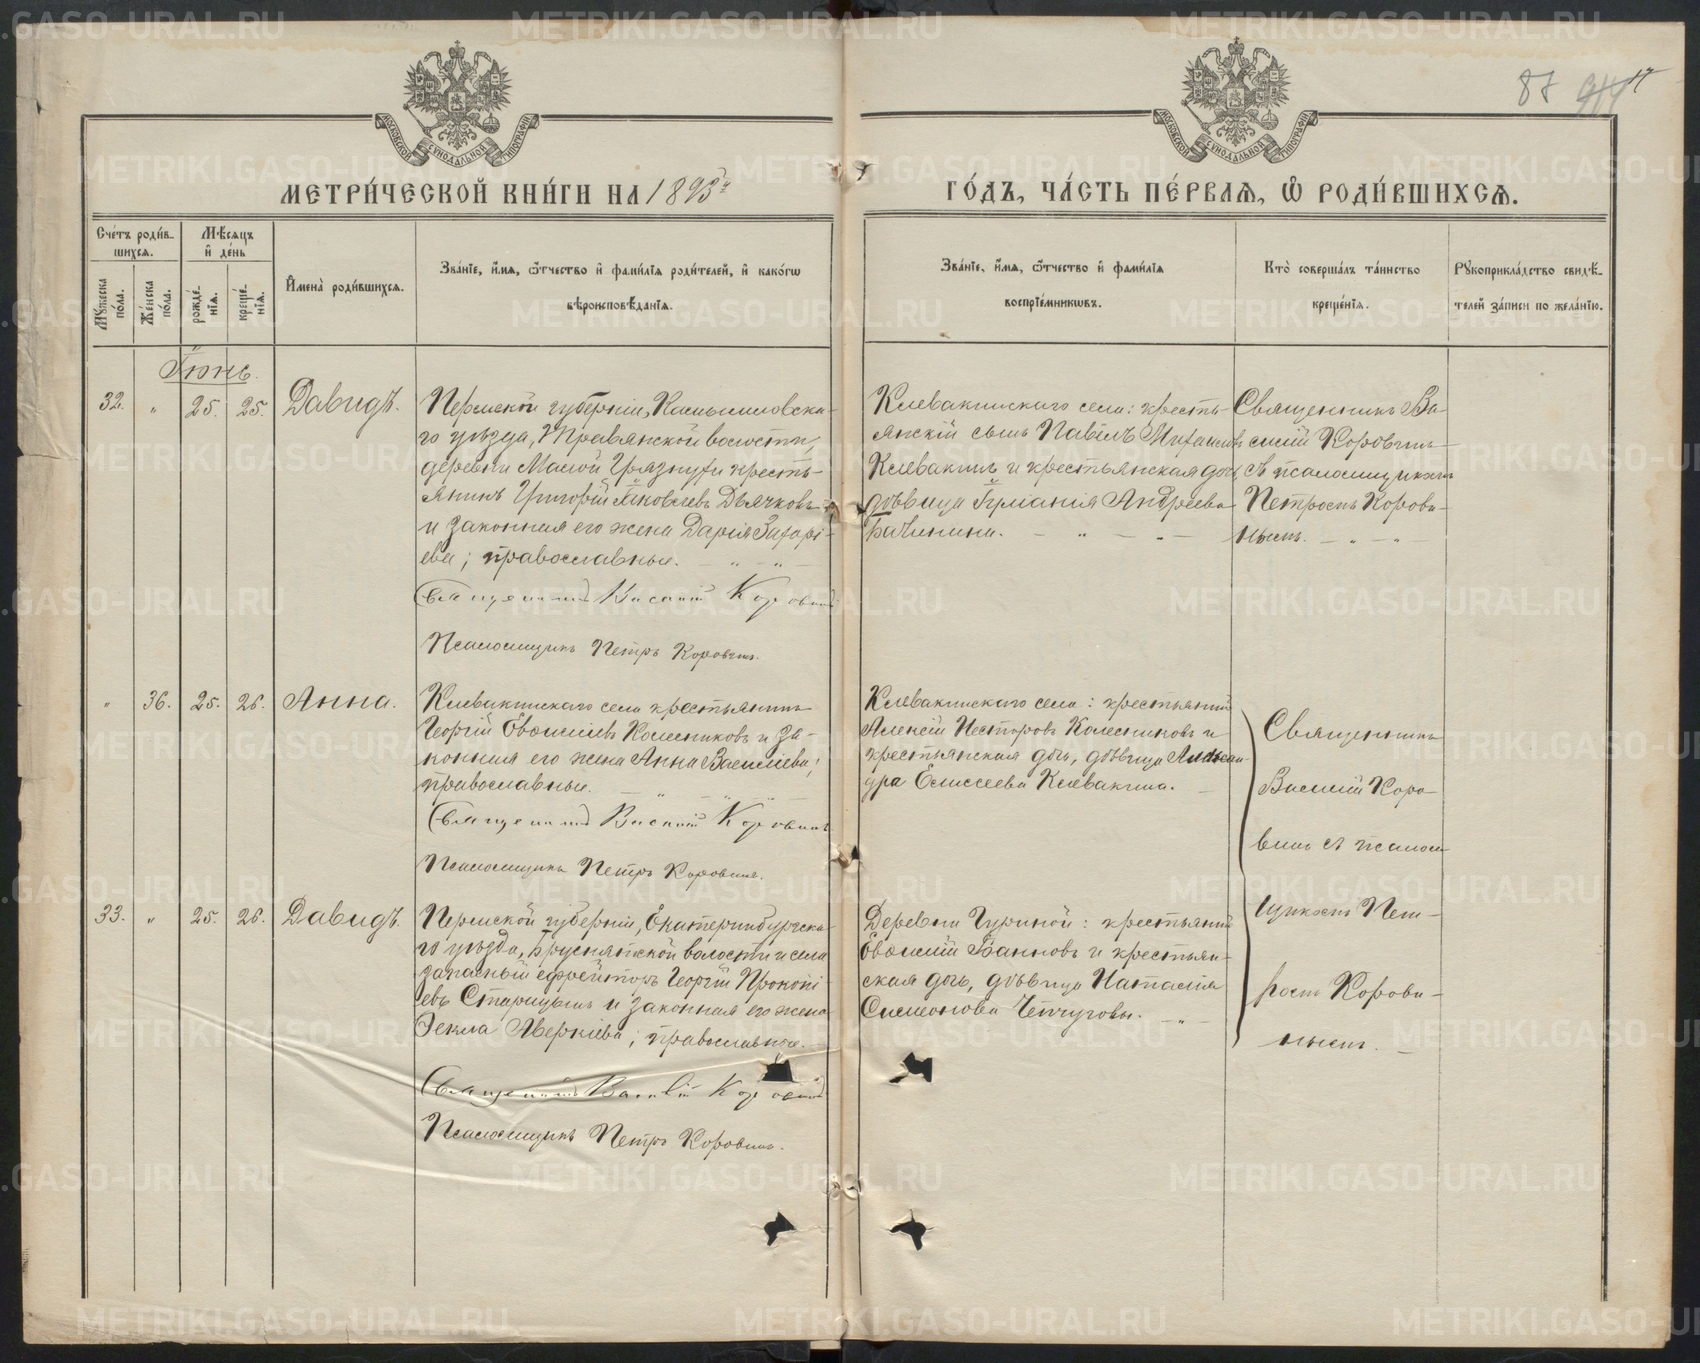 87
МОСКОВСКОЙ СѴНОДАЛЬНОЙ ТИПОГРАФІИ
МОСКОВСКОЙ СѴНОДАЛЬНОЙ ТИПОГРАФІИ
МЕТРИ́ЧЕСКОЙ КНИ́ГИ НА 1895й
ГО́ДЪ, ЧА́СТЬ ПЕ́РВАѦ, Ѡ҆ РОДИ́ВШИХСѦ.
Сче́тъ роди́в-
шихсѧ.
Мꙋжеска
по́ла.
Же́нска
по́ла.
Мѣ́сѧцъ
и҆ де́нь
рожде́-
нїѧ.
креще́-
нїѧ.
И҆мена̀ роди́вшихсѧ.
Зва́нїе, и҆́мѧ, ѻ҆́тчество и҆ фами́лїѧ роди́телей, и҆ како́гѡ
вѣроисповѣ́данїѧ.
Зва́нїе, и҆́мѧ, ѻ҆́тчество и҆ фами́лїѧ
воспрїе́мникѡвъ.
Кто̀ соверша́лъ та́инство
креще́нїѧ.
Рꙋкоприкла́дство свидѣ́-
телей за́писи по жела́нїю.
Іюнь.
32. " 25. 25. Давидъ.
Пермской губерніи, Камышловска-
го уѣзда, Травянской волости,
деревни Малой Грязнухи кресть-
янинъ Григорій Яковлевъ Дьячковъ
и законная его жена Дарія Захарі-
ева; православные. - " - " -
Священникъ Василій Коровинъ
Псаломщикъ Петръ Коровинъ.
Клевакинскаго села: кресть-
янскій сынъ Павелъ Михаиловъ
Клевакинъ и крестьянская дочь,
дѣвица Іуліанія Андреева
- " - " -
Священникъ Ва-
силій Коровинъ
съ псаломщикомъ
Петромъ Корови-
нымъ. - " - " -
" 36. 25. 26. Анна.
Клевакинскаго села крестьянинъ
Георгій Евѳиміевъ Колесниковъ и за-
конная его жена Анна Васильева;
православные. - " - " - " -
Священникъ Василій Коровинъ
Псаломщикъ Петръ Коровинъ.
Клевакинскаго села: крестьянинъ
Алексій Несторовъ Колесниковъ и
крестьянская дочь, дѣвица Алексан-
дра Елисеева Клевакина. -
Священникъ
Василій Коро-
винъ съ псалом-
щикомъ Пет-
ромъ Корови-
нымъ. -
33. " 25. 26. Давидъ.
Пермской губерніи, Екатеринбургска-
го уѣзда, Бруснятской волости и села
запасный ефрейторъ Георгій Прокопі-
евъ Старицынъ и законная его жена
Ѳекла Аверкіева; православные. -
Священникъ Василій Коровинъ
Псаломщикъ Петръ Коровинъ.
Деревни Гуриной: крестьянинъ
Евѳимій Банновъ и крестьян-
ская дочь, дѣвица Наталія
Симеонова Чепчугова. - " -
METRIKI.GASO-URAL.RU